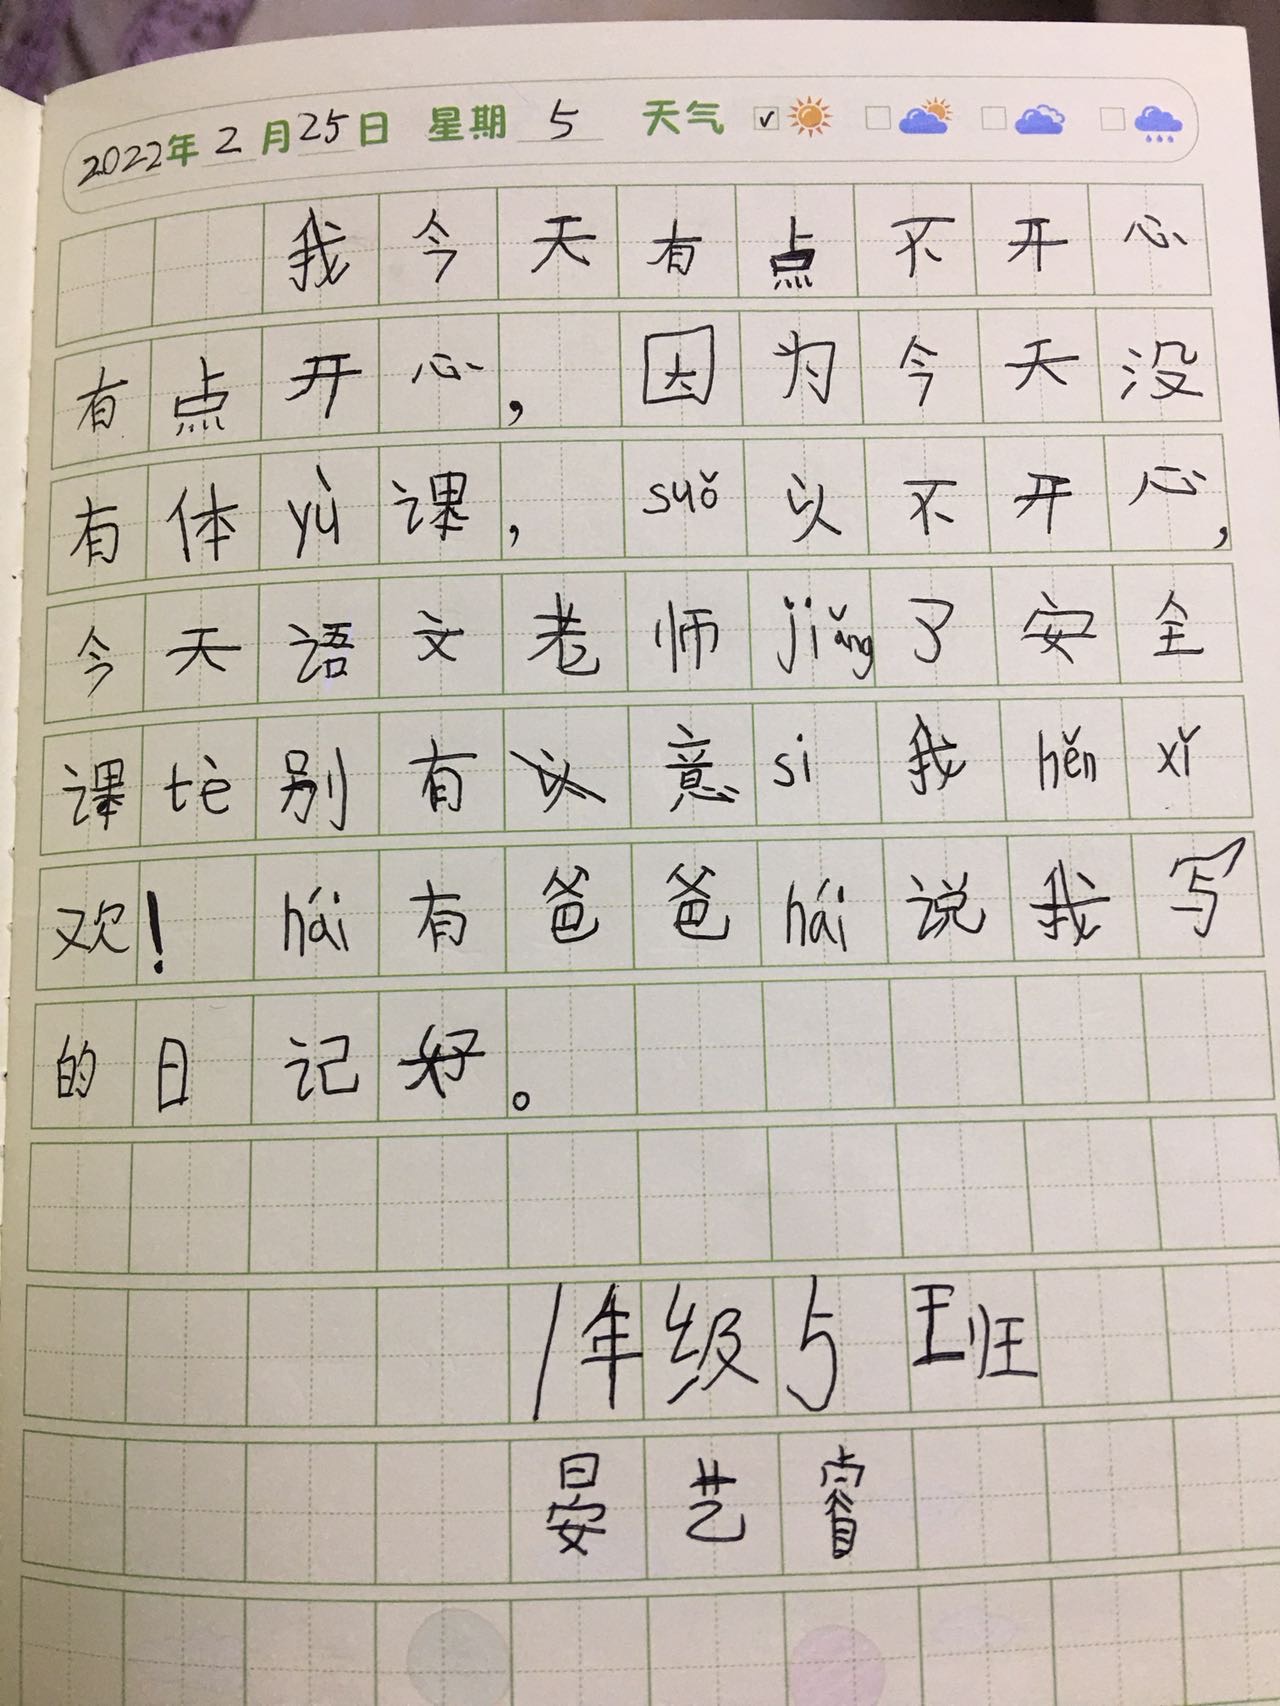 2022年2月25日 星期 5 天气 ✓
我今天有点不开心
有点开心，因为今天没
有体yù课，suǒ以不开心，
今天语文老师jiǎng了安全
课tè别有意si我hěnxǐ
欢！hái有爸爸hái说我写
的日记好。
1年级5班
晏艺睿